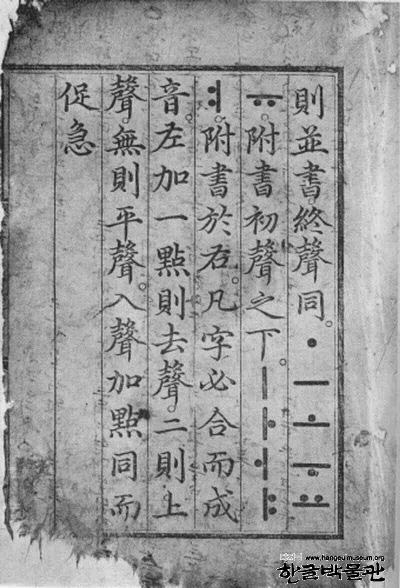 則並書。終聲同。ㆍㅡㅗㅜㅛ
ㅠ。附書初聲之下。ㅣㅏㅓㅑ
ㅕ。附書於右。凡字必合而成
音。左加一點則去聲。二則上
聲。無則平聲。入聲加點同而
促急
www.hangeulmuseum.org
한글박물관